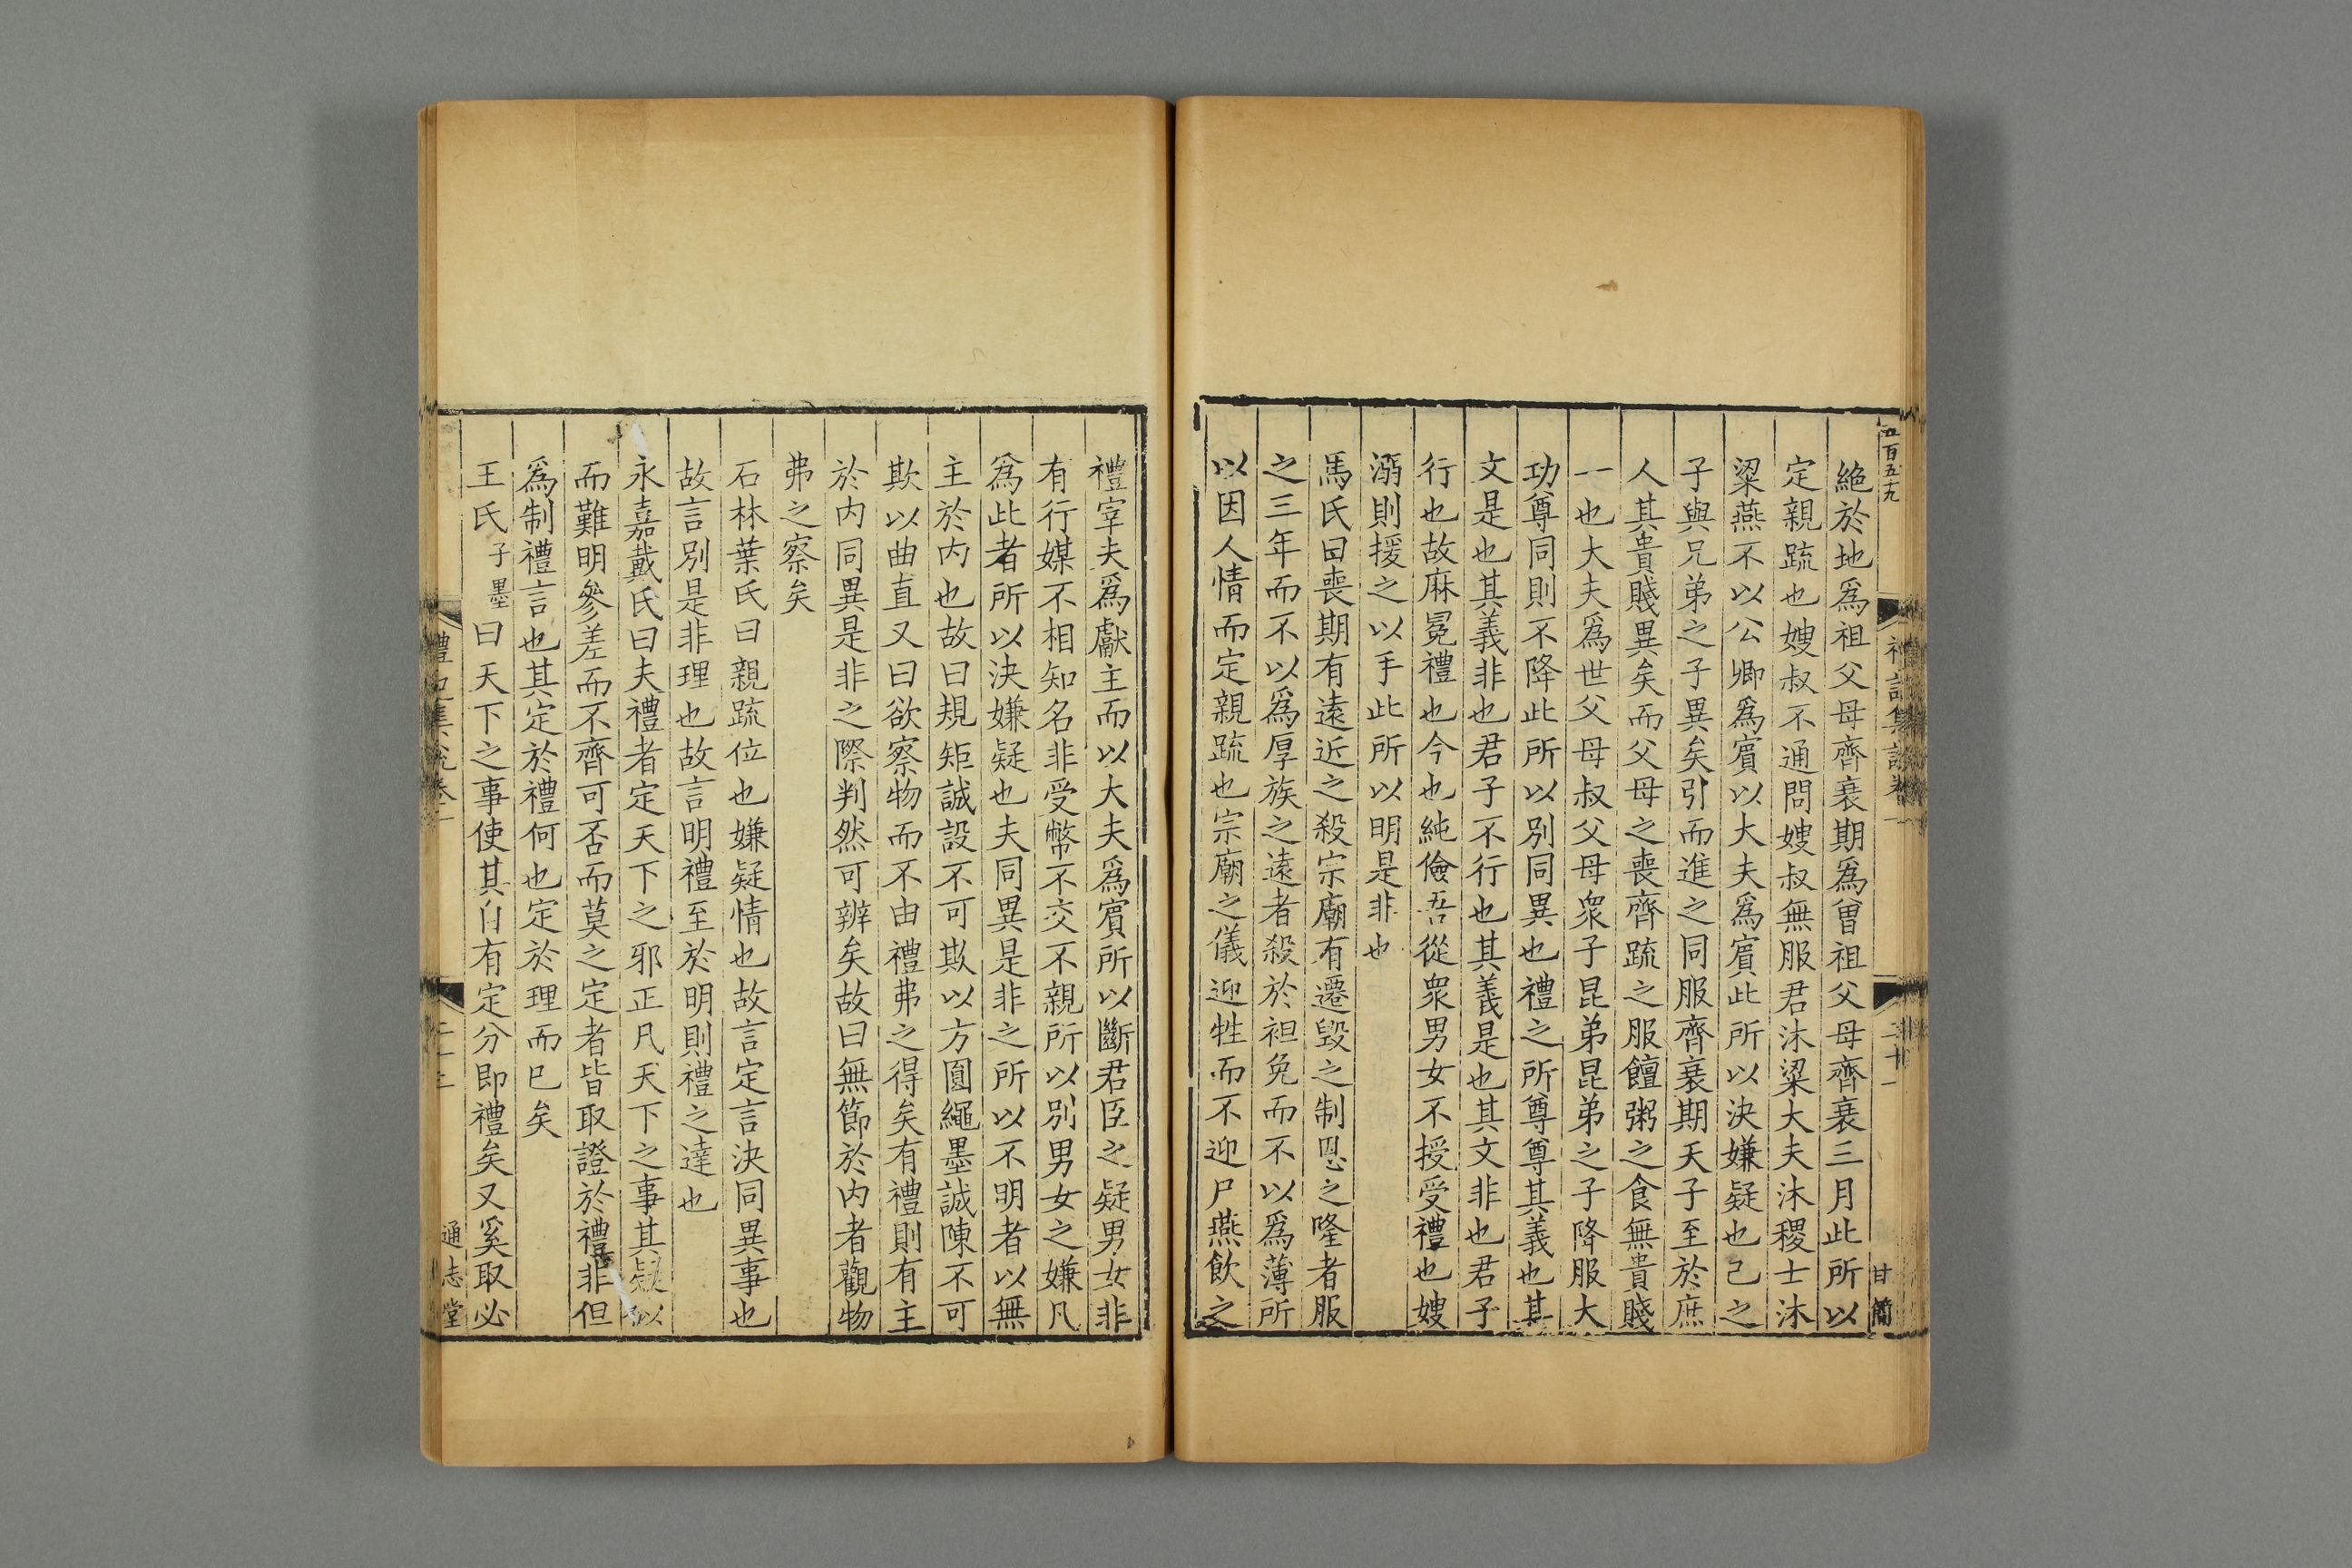 五百五十九
禮記集說卷一
二十一
甘簡
絶於地爲祖父母齊衰期爲曾祖父母齊衰三月此所以
定親疏也嫂叔不通問嫂叔無服君沐粱大夫沐稷士沐
粱燕不以公卿爲賓以大夫爲賓此所以決嫌疑也己之
子與兄弟之子異矣引而進之同服齊衰期天子至於庶
人其貴賤異矣而父母之喪齊疏之服饘粥之食無貴賤
一也大夫爲世父母叔父母衆子昆弟昆弟之子降服大
功尊同則不降此所以別同異也禮之所尊尊其義也其
文是也其義非也君子不行也其義是也其文非也君子
行也故麻冕禮也今也純儉吾從衆男女不授受禮也嫂
溺則援之以手此所以明是非也
馬氏曰喪期有遠近之殺宗廟有遷毀之制恩之隆者服
之三年而不以爲厚族之遠者殺於袒免而不以爲薄所
以因人情而定親疏也宗廟之儀迎牲而不迎尸燕飲之
禮宰夫爲獻主而以大夫爲賓所以斷君臣之疑男女非
有行媒不相知名非受幣不交不親所以別男女之嫌凡
爲此者所以決嫌疑也夫同異是非之所以不明者以無
主於内也故曰規矩誠設不可欺以方圓繩墨誠陳不可
欺以曲直又曰欲察物而不由禮弗之得矣有禮則有主
於内同異是非之際判然可辨矣故曰無節於内者觀物
弗之察矣
石林葉氏曰親疏位也嫌疑情也故言定言決同異事也
故言別是非理也故言明禮至於明則禮之達也
永嘉戴氏曰夫禮者定天下之邪正凡天下之事其疑似
而難明參差而不齊可否而莫之定者皆取證於禮非但
爲制禮言也其定於禮何也定於理而已矣
王氏子墨曰天下之事使其自有定分即禮矣又奚取必
禮記集説卷一
通志堂